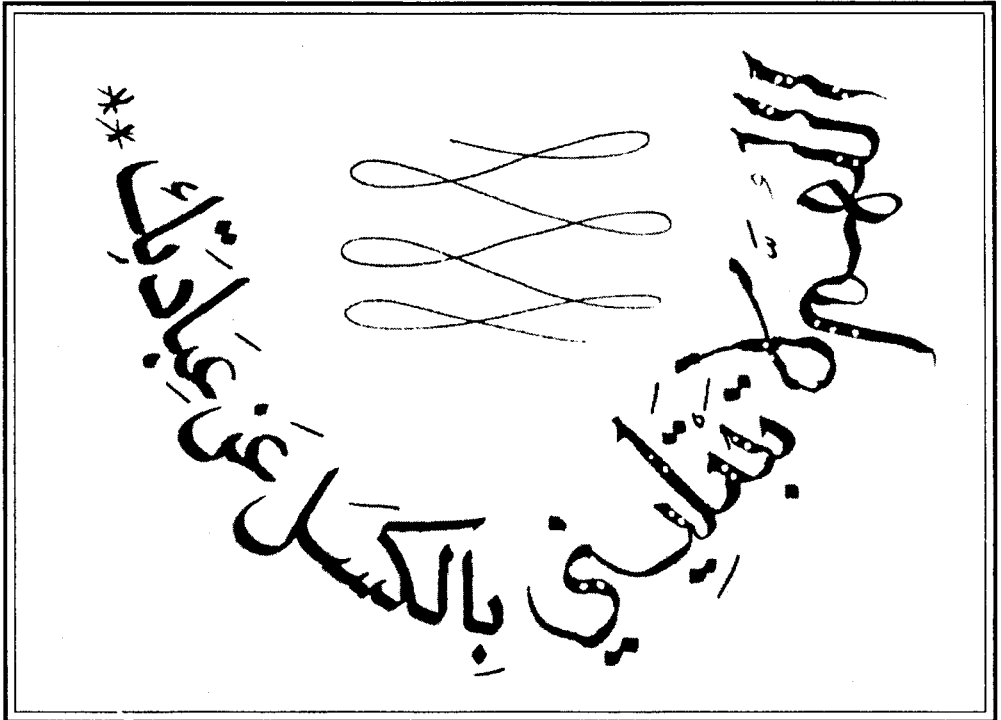 اللهم لا تبتليني بالكسل عن عبادتك